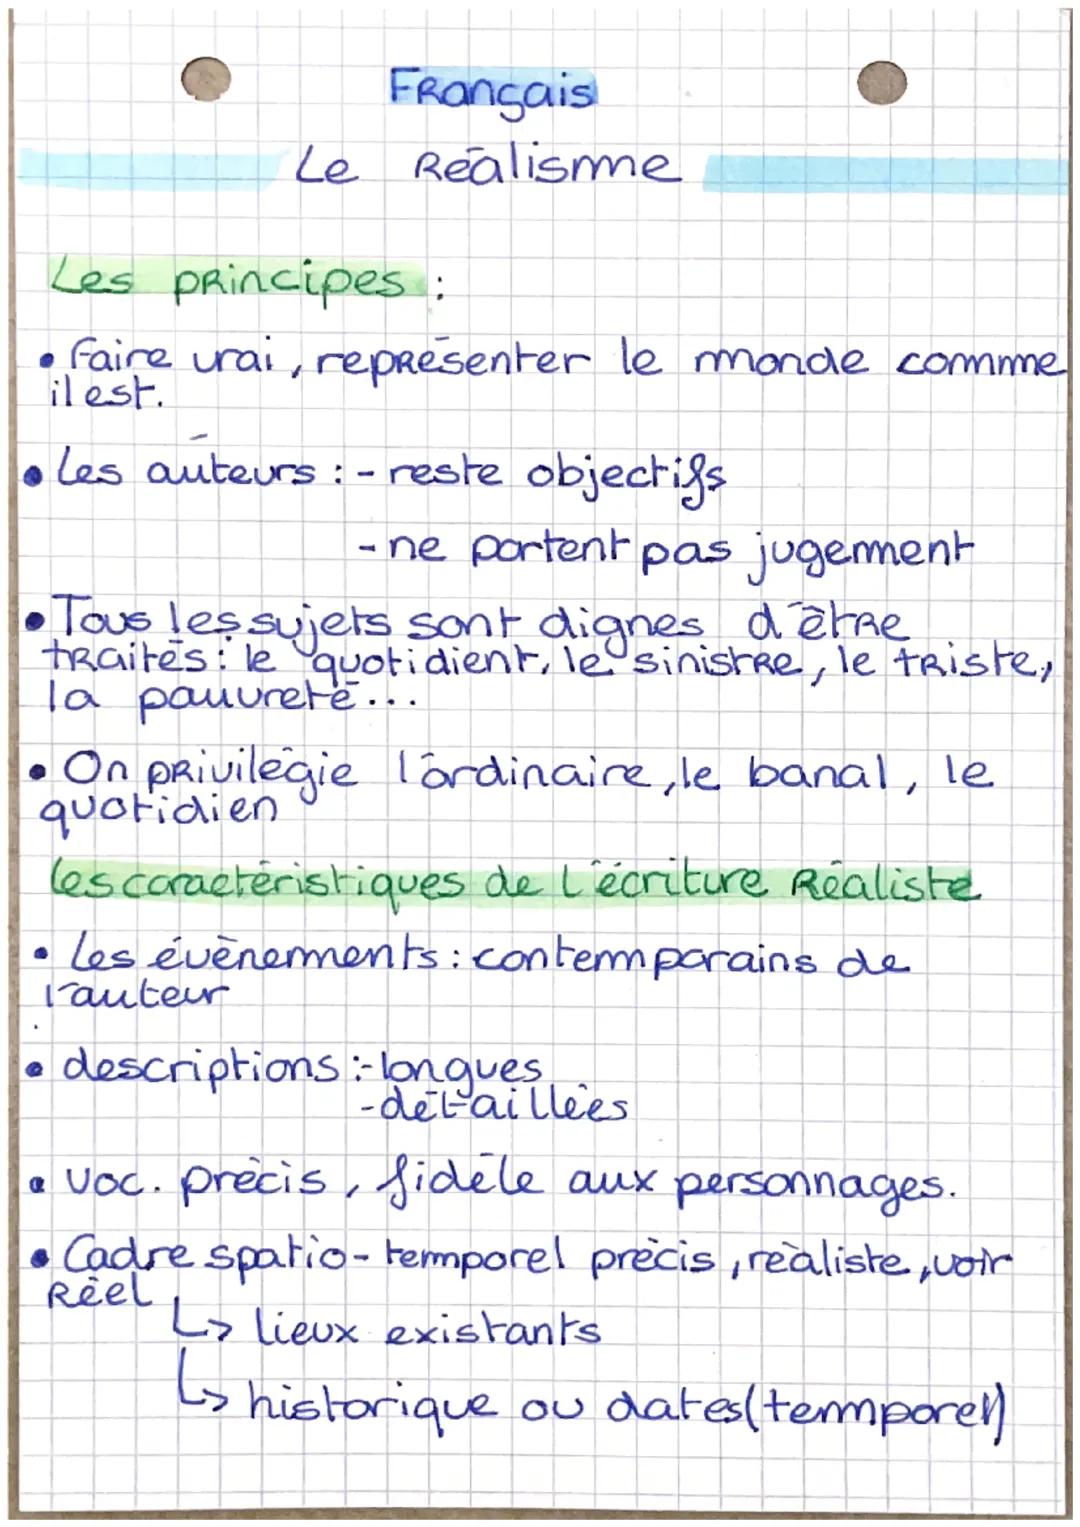 Français
Le Réalisme
Les principes :
• faire vrai, représenter le monde comme
il est.
• Les auteurs : - reste objectifs
- ne portent pas jugement
• Tous les sujets sont dignes d'être
traités : le quotidient, le sinistre, le triste,
la pauvreté...
• On privilégie l'ordinaire, le banal, le
quotidien
les caractéristiques de l'écriture Réaliste
• Les évènements : contemporains de
l'auteur
• descriptions : - longues
- détaillées
• voc. précis, fidèle aux personnages.
• Cadre spatio-temporel précis, réaliste, voir
Réel
↳ lieux existants
↳ historique ou dates (temporel)